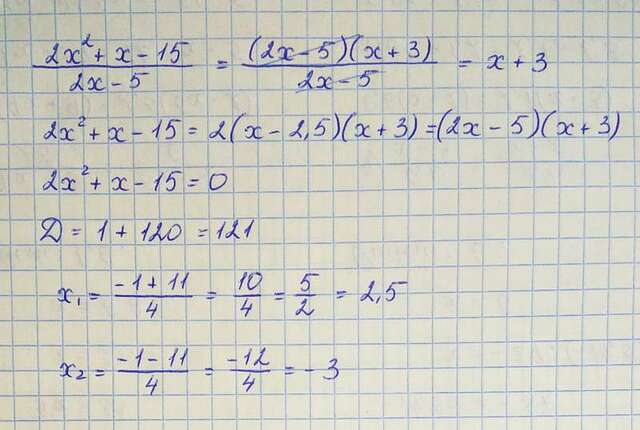 (2x² + x - 15)/(2x - 5) = ((2x - 5)(x + 3))/(2x - 5) = x + 3
2x² + x - 15 = 2(x - 2,5)(x + 3) = (2x - 5)(x + 3)
2x² + x - 15 = 0
Д = 1 + 120 = 121
x₁ = (-1 + 11)/4 = 10/4 = 5/2 = 2,5
x₂ = (-1 - 11)/4 = -12/4 = -3